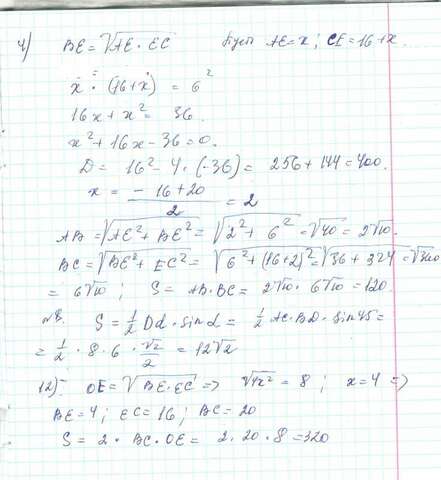 4) BE = √AE · EC Пусть AE = x; CE = 16 + x.
x · (16 + x) = 6²
16x + x² = 36.
x² + 16x - 36 = 0.
D = 16² - 4 · (-36) = 256 + 144 = 400.
x = (-16 + 20)/2 = 2
AB = √AE² + BE² = √2² + 6² = √40 = 2√10.
BC = √BE² + EC² = √6² + (16+2)² = √36 + 324 = √360
= 6√10; S = AB · BC = 2√10 · 6√10 = 120
№8. S = ½ Dd · sin α = ½ AC · BD · sin 45 =
= ½ · 8 · 6 · √2/2 = 12√2
12) OE = √BE · EC => √4x² = 8; x = 4 =>
BE = 4; EC = 16; BC = 20
S = 2 · BC · OE = 2 · 20 · 8 = 320